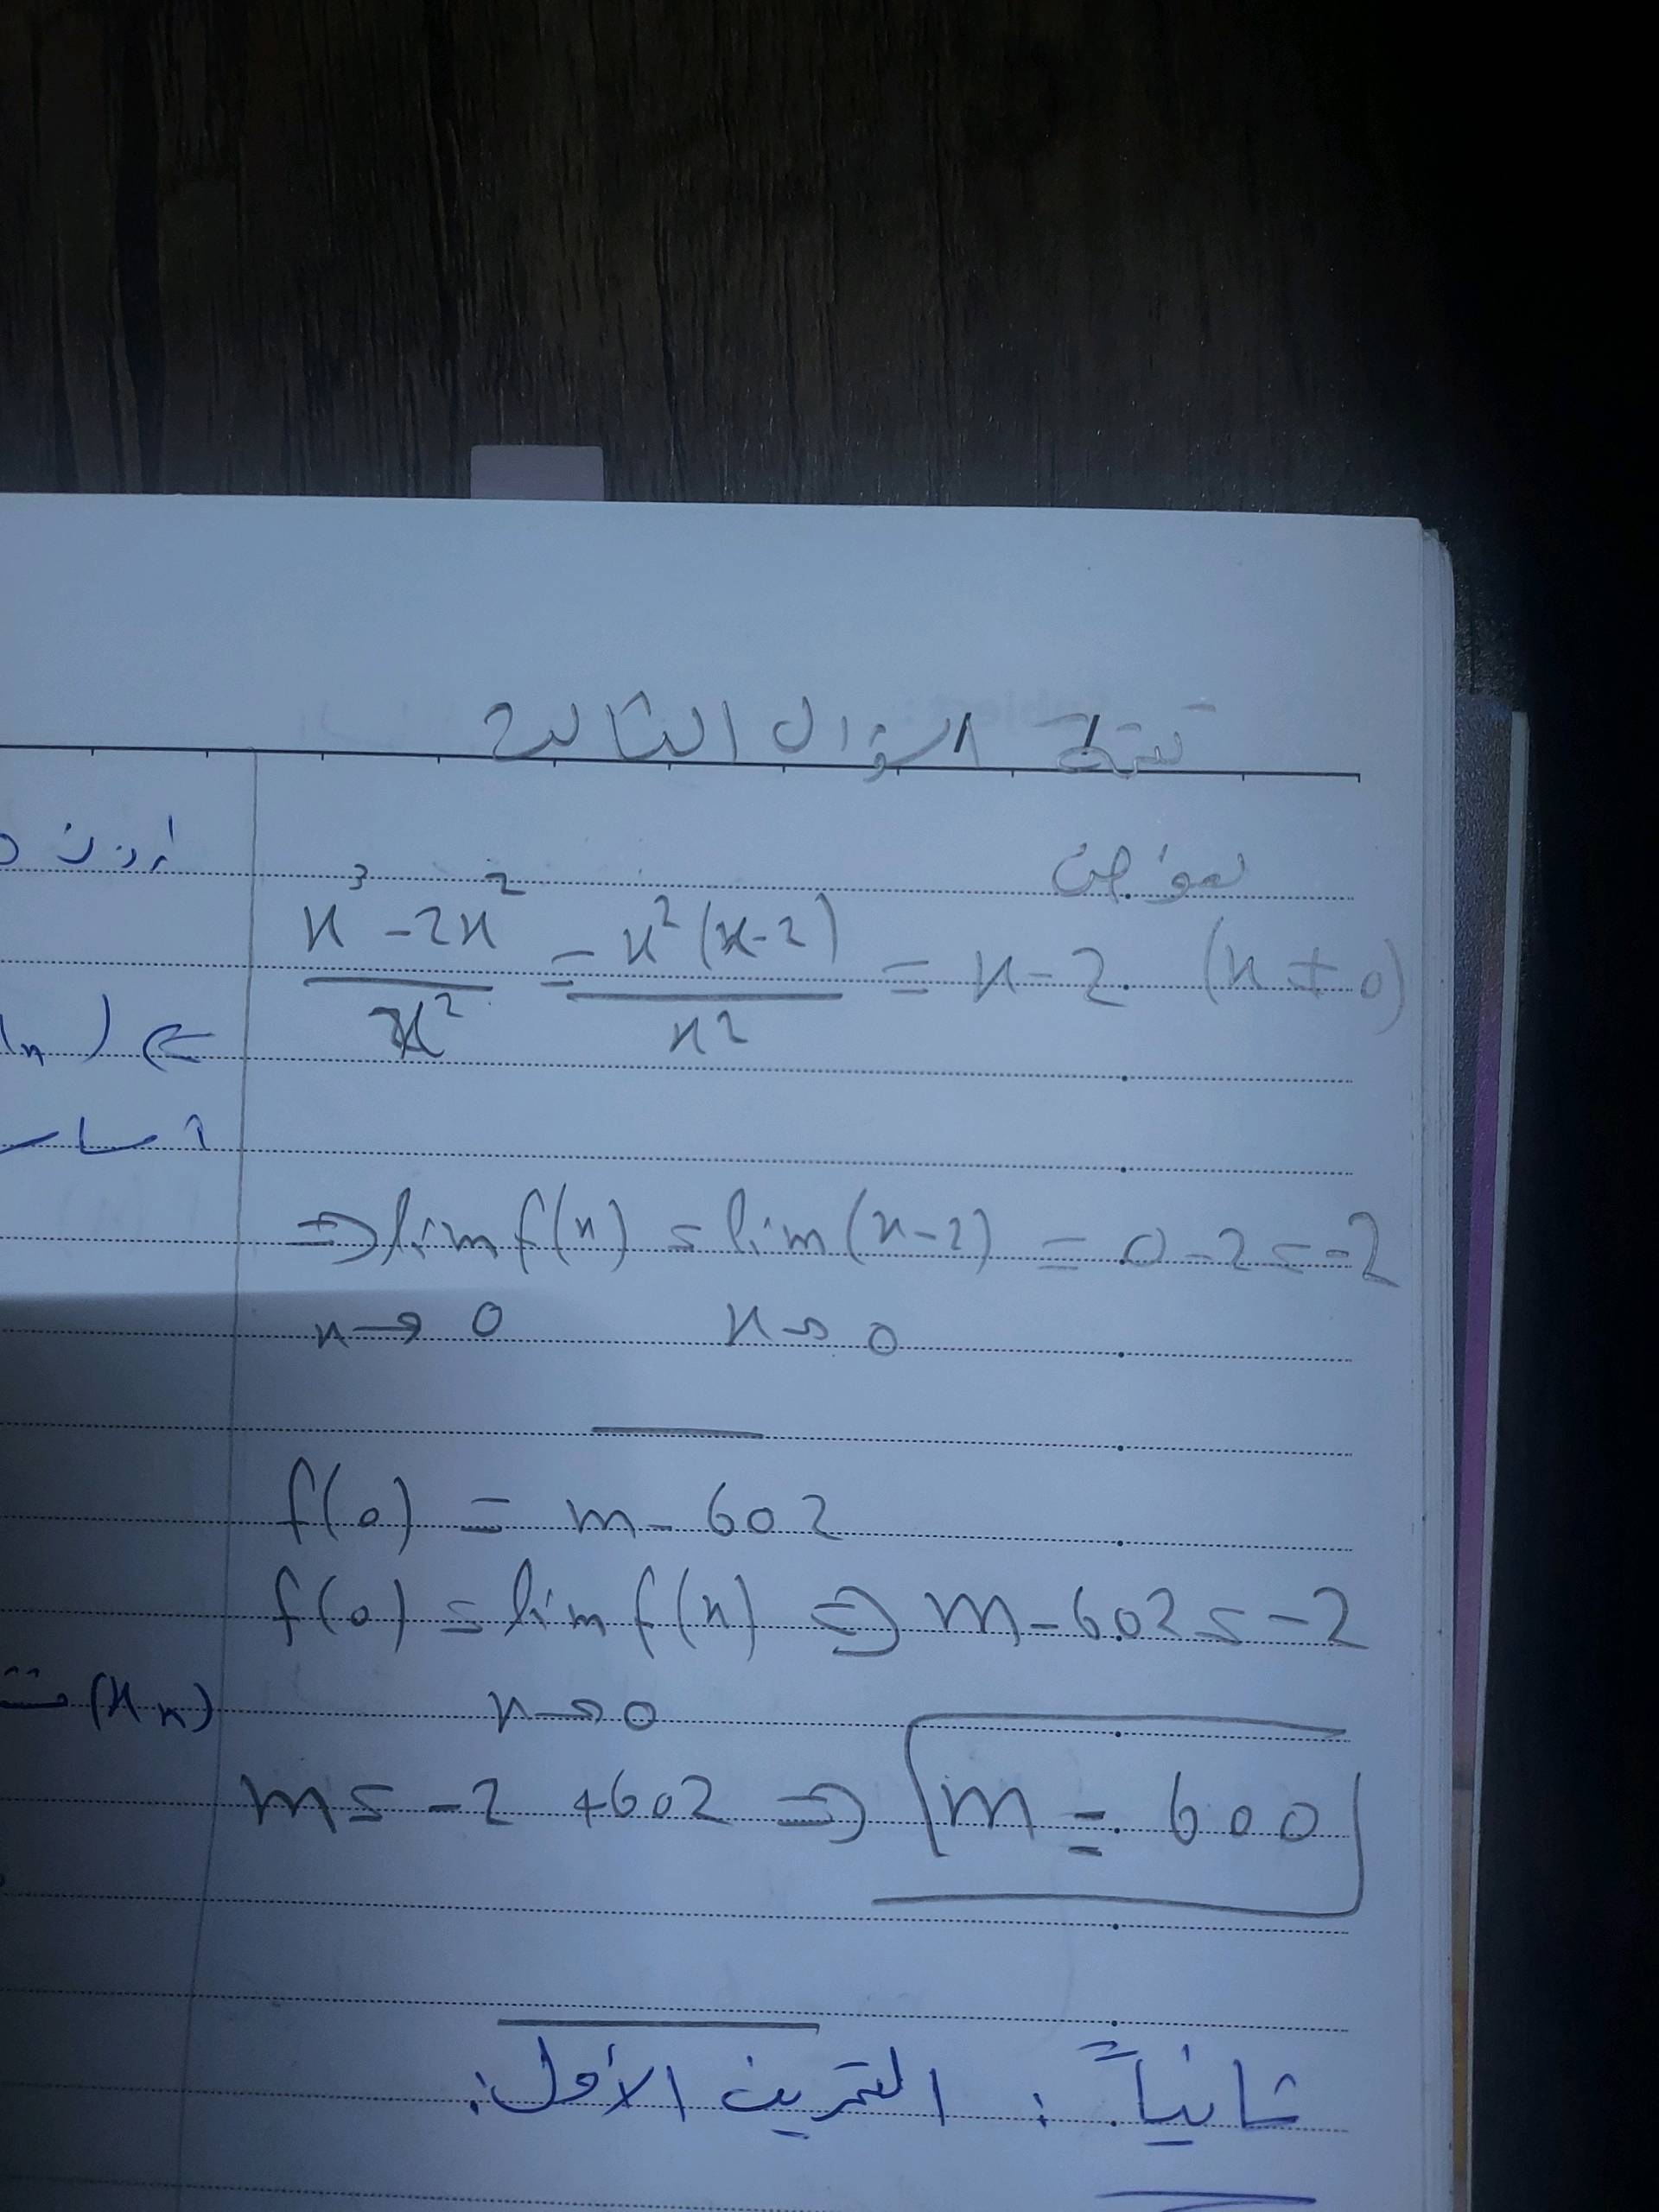 تتمة السؤال الثالث
نعوض
x³ - 2x² / x² = x²(x-2) / x2 = x-2 (x ≠ 0)
⇒ lim f(x) = lim (x-2) = 0-2 = -2
x→0 x→0
f(0) = m - 602
f(0) = lim f(x) ⇒ m - 602 = -2
x→0
m = -2 + 602 ⇒ m = 600
ثانياً : التمرين الأول: